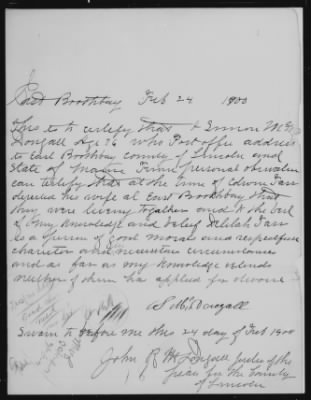 East Boothbay Feb 24 1900
This is to certify that I Simon McD
ougall Age 76 who Post office address
is East Boothbay County of Lincoln and
State of Maine From personal observation
can certify that at the time of Edwin Farr
his wife at East Boothbay that
they were living together and to the best
of my knowledge and belief Delilah Farr
is a person of good moral and respectful
charitor and circumstances
and as far as my knowledge extends
neither of them has applied for divorce
S McDougall
Swarn to before me this 24 day of Feb 1900
John R McDougall Justice of the
peace for the County
of Lincoln